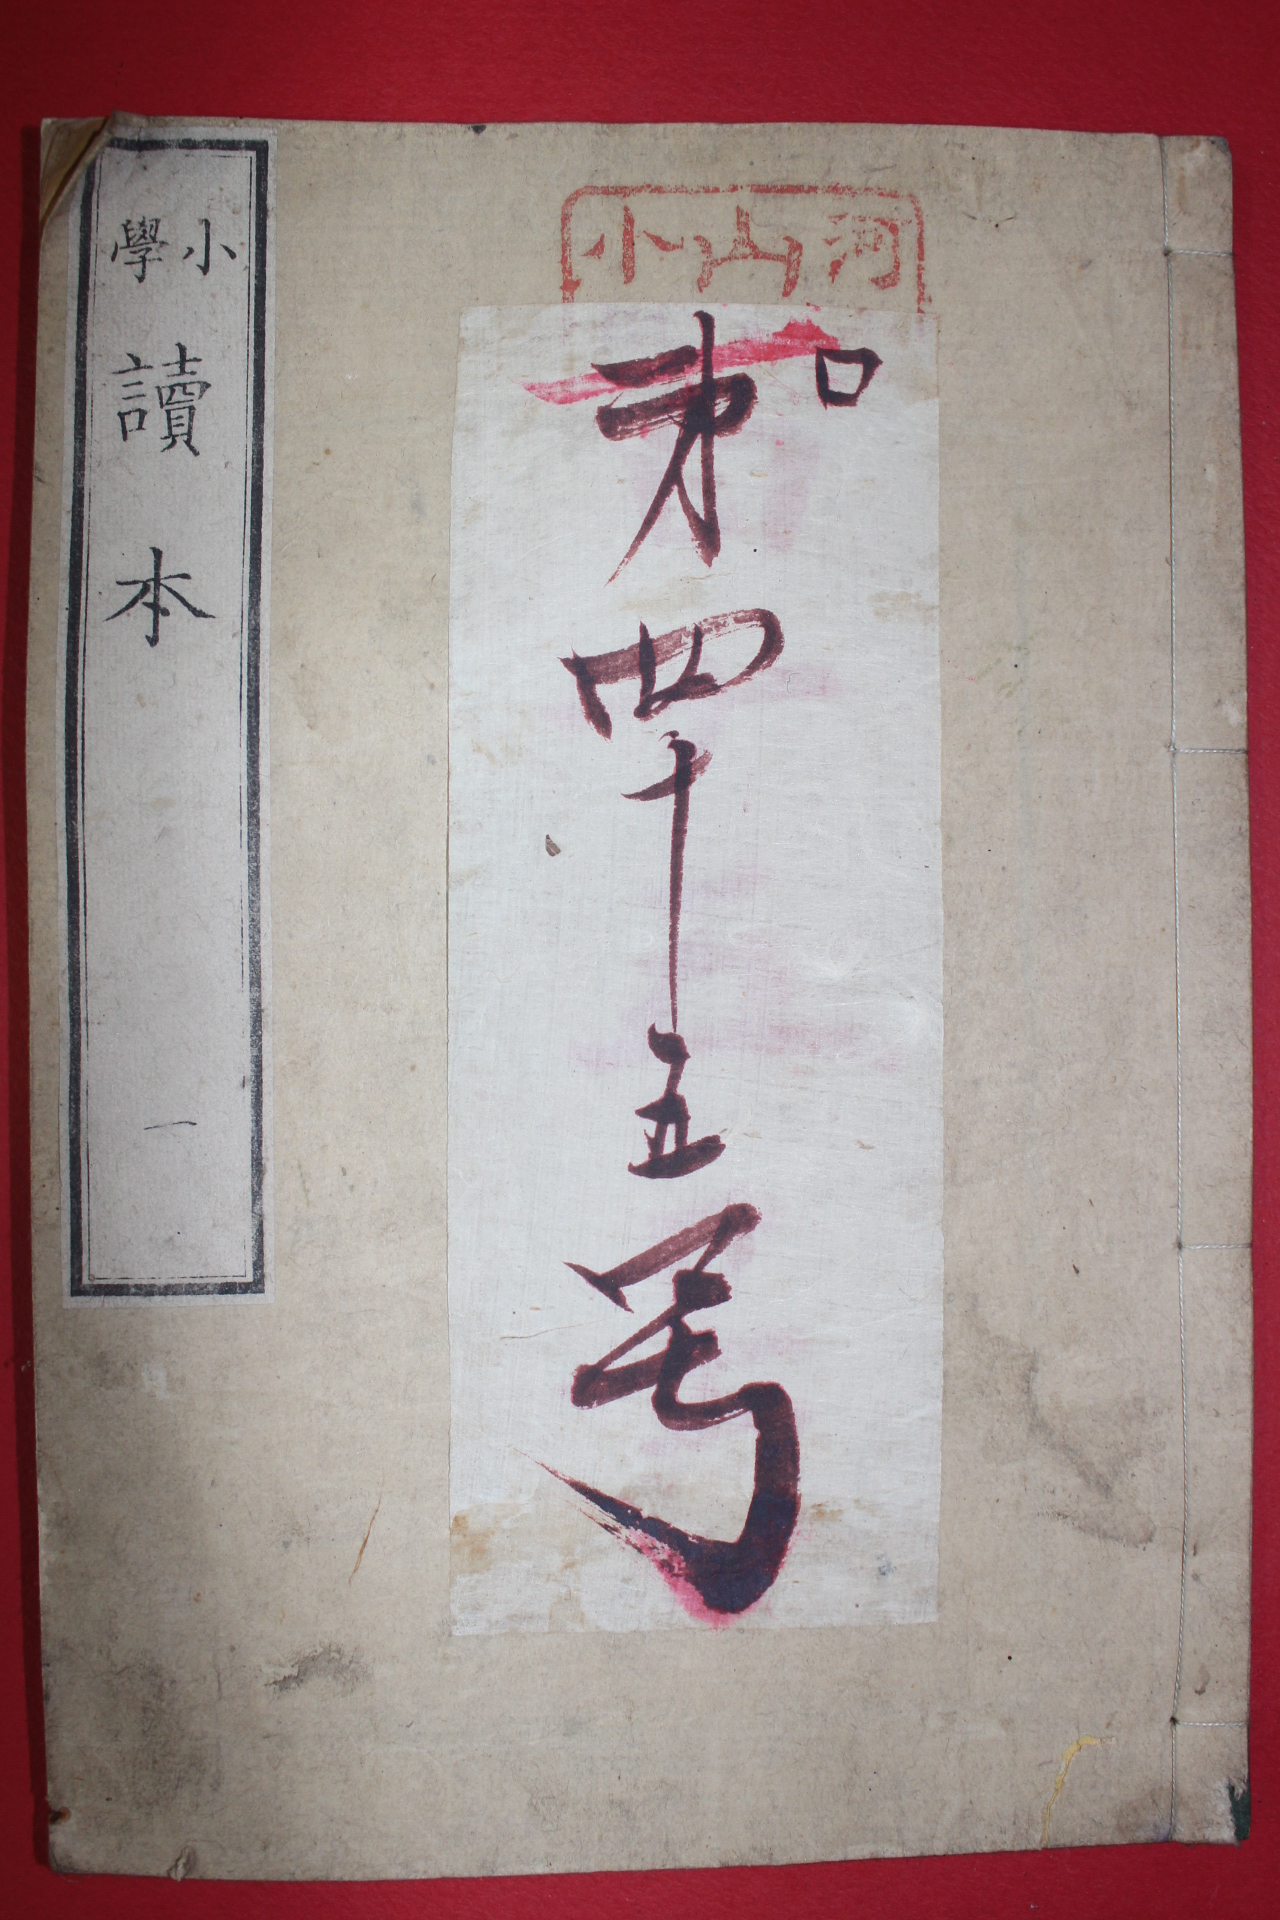 河山小
ロ
第四十五号
小學
讀本
一